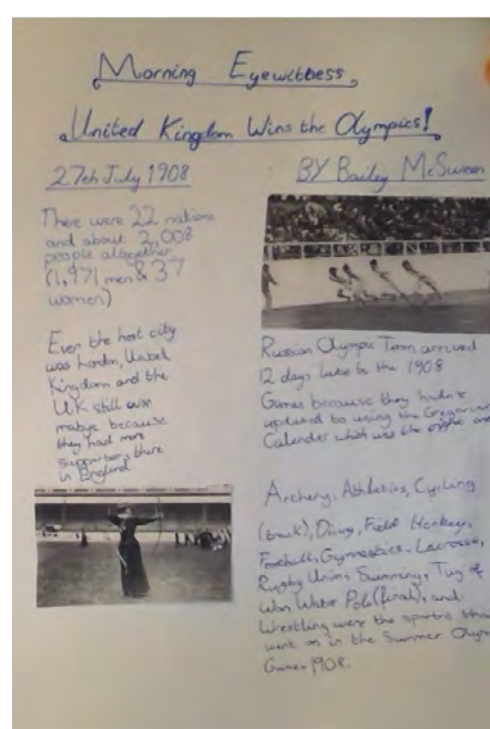 Morning Eyewitbess
United Kingdom Wins the Olympics!
27th July 1908
BY Bailey McSween
There were 22 nations
and about 2,008
people altogether
(1,971 men & 37
women)
Even the host city
was London, United
Kingdom and the
UK still won
mabye because
they had more
supporters there
in England
Russian Olympic Team arrived
12 days late to the 1908
Games because they hadn't
updated to using the Gregorian
Calender which was the
Archery, Athletics, Cycling
(track), Diving, Field Hockey,
Football, Gymnastics, Lacrosse,
Rugby Union, Swimming, Tug of
War, Water Polo (final), and
Wrestling were the sports that
went on in the Summer Olym
Games 1908.